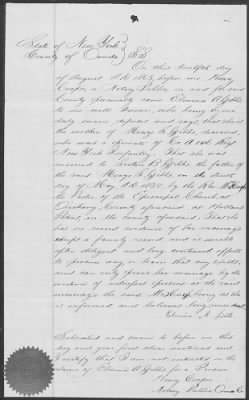 State of New York }
County of Oneida } SS
On this twelfth day
of August A.D. 1863 before me Henry
Cooper a Notary Public in and for said
County personally came Elmina A Gibbs
to me well known, who being by me
duly sworn deposes and says that she is
the mother of Henry G. Gibbs, deceased
who was a private of Co A Regt
New York Infantry. That she was
married to B Gibbs the father of
the said Henry G. Gibbs on the tenth
day of May A.D. 1838. by the Rev
the Pastor of the Episcopal Church at
County aforesaid at Holland
Patent in the county aforesaid. That she
has no record evidence of her marriage
except a family record and is unable
after diligent and long continued efforts
to procure any or learn that any exists,
and can only prove her marriage by the
evidence of interested persons at the said
marriage the said being as she
is informed and believes long
Elmina A Gibbs
Subscribed and sworn to before me this
day and year first above mentioned and
I certify that I am not interested in the
claim of Elmina A Gibbs for a Pension
Henry Cooper
Notary Public Oneida Co